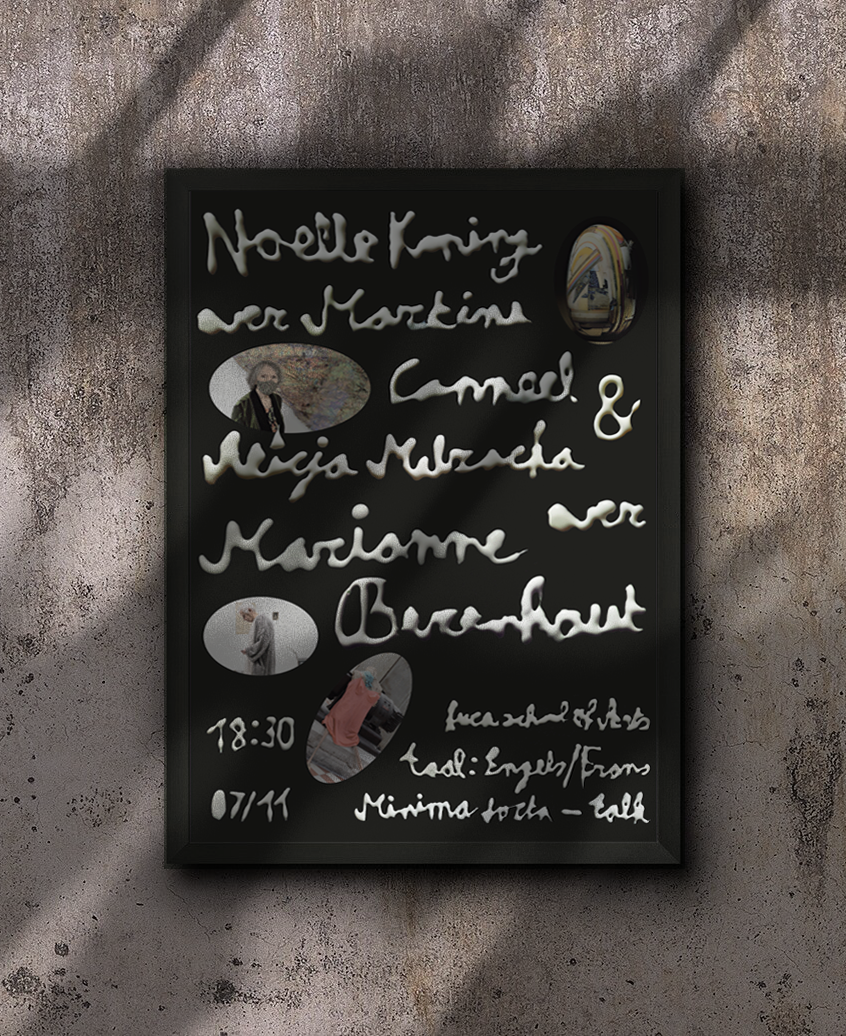 Noëlle Koning
over Martine
Canneel &
Alicja Melzacka
over
Marianne
Berenhaut
18:30
Luca school of Arts
taal: Engels/Frans
07/11
Minima docta – talk